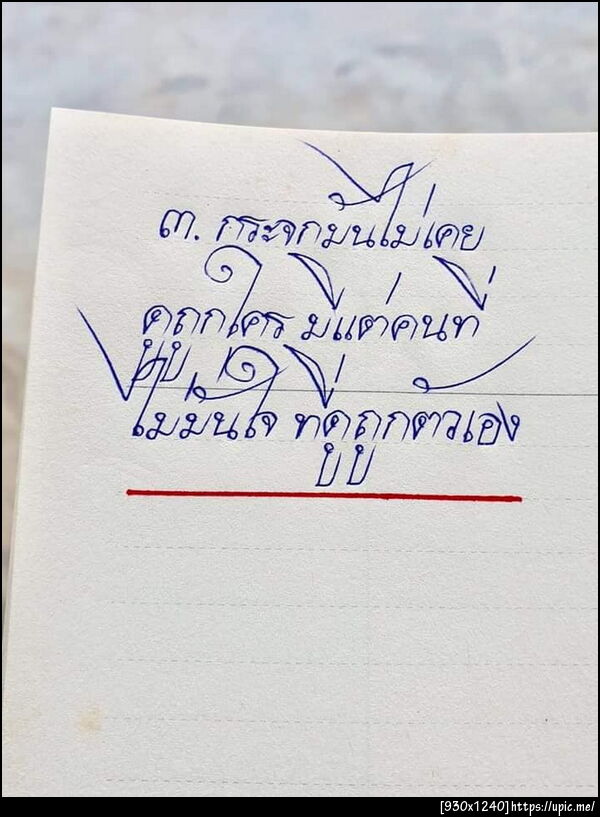 ๓. กระจกมันไม่เคย
ดูถูกใคร มีแต่คนที่
ไม่มั่นใจ ที่ดูถูกตัวเอง
[930x1240]https://upic.me/